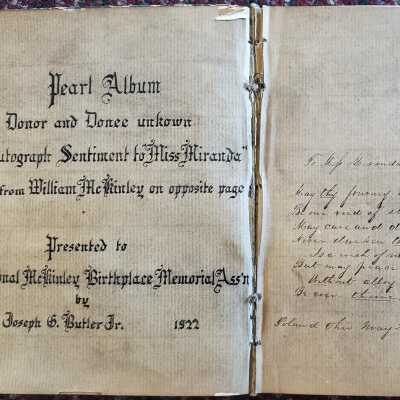 Pearl Album
Donor and Donee unkown
utograph Sentiment to "Miss Miranda"
from William McKinley on opposite page
Presented to
onal McKinley Birthplace Memorial Ass'n
by
Joseph G. Butler Jr. 1922
To Miss Miranda
May thy journey
May care and
But may peace
Without alloy
Be ever thine
Poland Ohio May